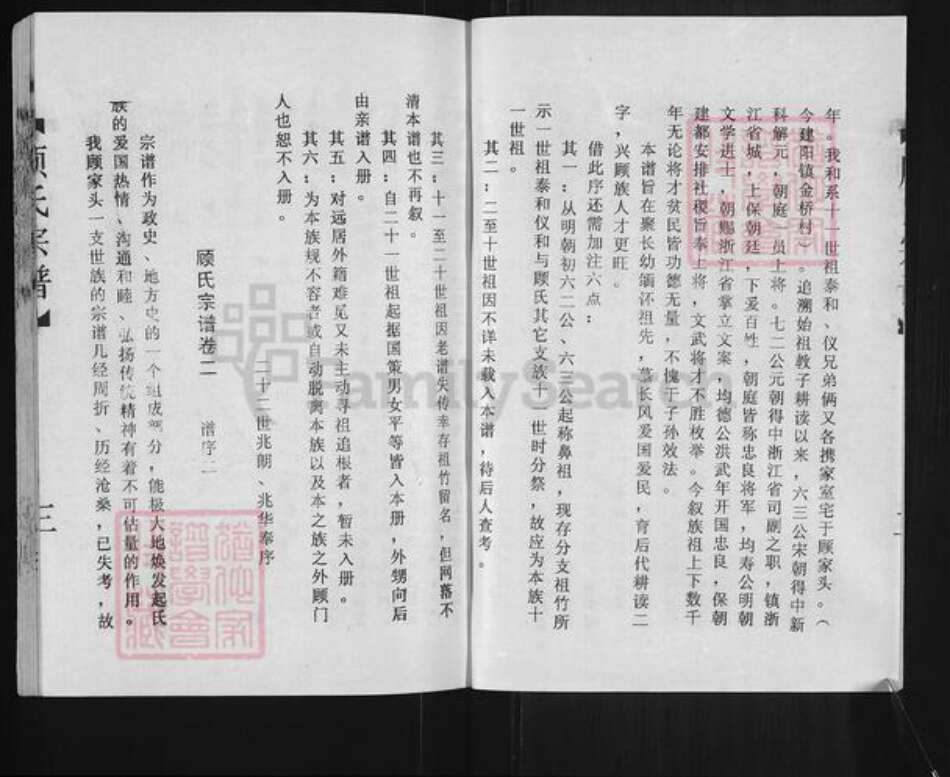 年。我和系十一世祖泰和、仪兄弟俩又各携家室宅于顾家头。（
今建阳镇金桥村）。追溯始祖教子耕读以来，六三公宋朝得中新
科解元，朝庭一员上将。七二公元朝得中浙江省司副之职，镇浙
江省城，上保朝廷，下爱百姓，朝庭皆称忠良将军，均寿公明朝
文学进士，朝赐浙江省掌立文案，均德公洪武年开国忠良，保朝
建都安排社稷旨奉上将，文武将才不胜枚举。今叙族祖上下数千
年无论将才贫民皆功德无量，不愧于子孙效法。
本谱旨在聚长幼缅怀祖先，慕长风爱国爱民，育后代耕读二
字，兴顾族人才更旺。
借此序还需加注六点：
其一：从明朝初六二公、六三公起称鼻祖，现存分支祖竹所
示一世祖泰和仪和与顾氏其它支族十一世时分祭，故应为本族十
一世祖。
其二：二至十世祖因不详未载入本谱，待后人查考。
其三：十一至二十世祖因老谱失传幸存祖竹留名，但网落不
清本谱也不再叙。
其四：自二十一世祖起据国策男女平等皆入本册，外甥向后
由亲谱入册。
其五：对远居外籍难见又未主动寻祖追根者，暂未入册。
其六：为本族规不容者或自动脱离本族以及本之族之外顾门
人也恕不入册。
二十三世兆朗、兆华奉序
顾氏宗谱卷二 谱序二
宗谱作为政史、地方史的一个组成部分，能极大地焕发起氏
族的爱国热情、沟通和睦、弘扬传统精神有着不可估量的作用。
我顾家头一支世族的宗谱几经周折、历经沧桑，已失考，故
【顾氏宗谱】
三
FamilySearch